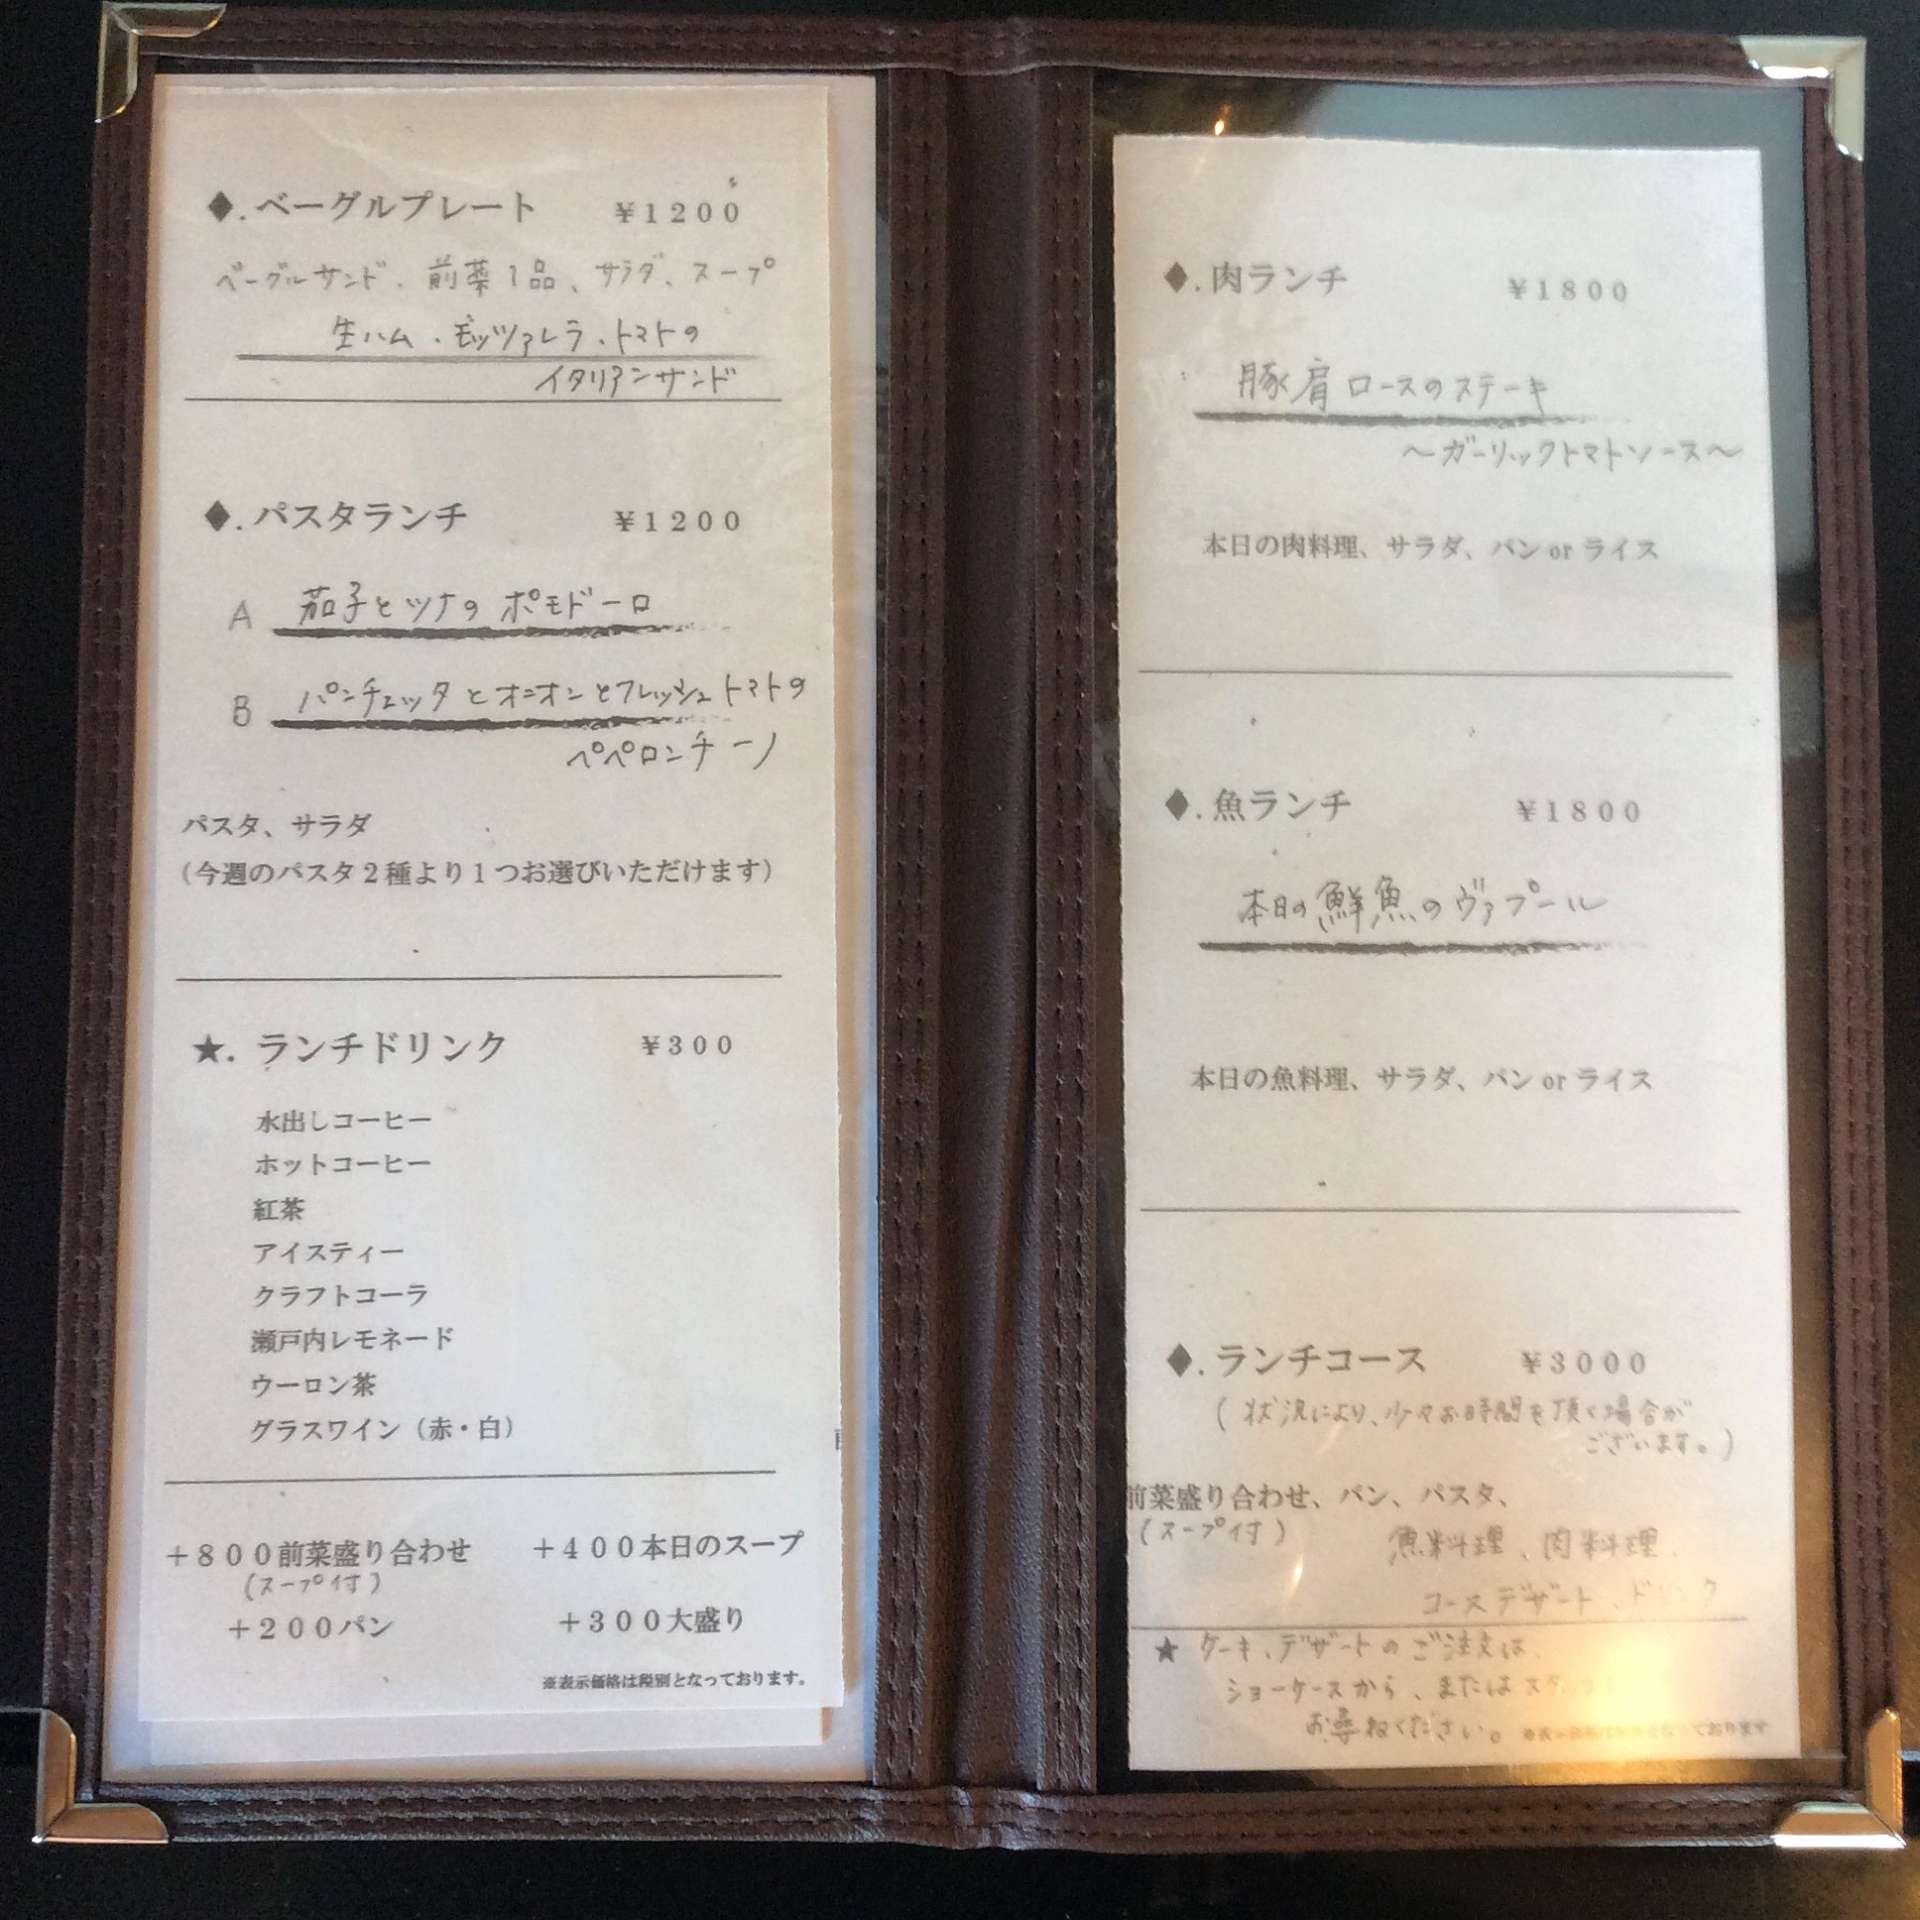 ◆. ベーグルプレート ￥1200
ベーグルサンド、前菜1品、サラダ、スープ
生ハム、モッツァレラ、トマトの
イタリアンサンド
◆. パスタランチ ￥1200
A 茄子とツナのポモドーロ
B パンチェッタとオニオンとフレッシュトマトの
ペペロンチーノ
パスタ、サラダ
（今週のパスタ２種より１つお選びいただけます）
★. ランチドリンク ￥300
水出しコーヒー
ホットコーヒー
紅茶
アイスティー
クラフトコーラ
瀬戸内レモネード
ウーロン茶
グラスワイン（赤・白）
＋８００前菜盛り合わせ ＋４００本日のスープ
(スープ付)
＋２００パン ＋３００大盛り
※表示価格は税別となっております。
◆. 肉ランチ ￥1800
豚肩ロースのステーキ
～ガーリックトマトソース～
本日の肉料理、サラダ、パン or ライス
◆. 魚ランチ ￥1800
本日の鮮魚のヴァプール
本日の魚料理、サラダ、パン or ライス
◆. ランチコース ￥3000
(状況により、少々お時間を頂く場合が
ございます。)
前菜盛り合わせ、パン、パスタ、
(スープ付) 魚料理、肉料理、
コースデザート、ドリンク
★ ケーキ、デザートのご注文は、
ショーケースから、またはスタッフに
お尋ねください。 となっております